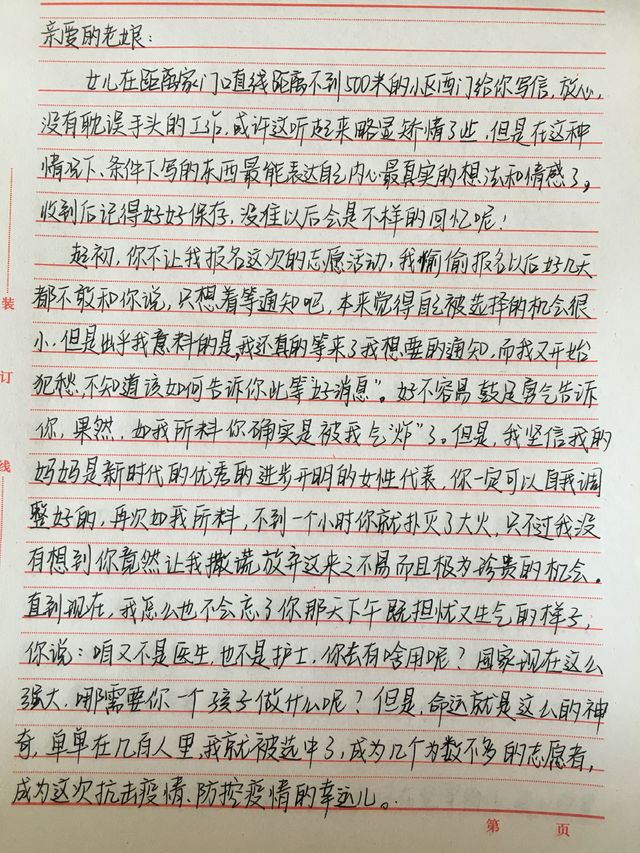 亲爱的老娘：
女儿在距离家门口直线距离不到500米的小区西门给你写信，放心，
没有耽误手头的工作，或许这听起来略显矫情了些，但是在这种
情况下、条件下写的东西最能表达自己内心最真实的想法和情感了，
收到后记得好好保存，没准以后会是不一样的回忆呢！
起初，你不让我报名这次的志愿活动，我偷偷报名以后好几天
都不敢和你说，只想着等通知吧，本来觉得自己被选择的机会很
小，但是出乎我意料的是，我还真的等来了我想要的通知，而我又开始
犯愁，不知道该如何告诉你此等“好消息”。好不容易鼓足勇气告诉
你，果然，如我所料你确实是被我气“炸”了。但是，我坚信我的
妈妈是新时代的优秀的进步开明的女性代表，你一定可以自我调
整好的，再次如我所料，不到一个小时你就扑灭了大火，只不过我没
有想到你竟然让我撒谎放弃这来之不易而且极为珍贵的机会。
直到现在，我怎么也不会忘了你那天下午既担忧又生气的样子，
你说：咱又不是医生，也不是护士，你去有啥用呢？国家现在这么
强大，哪需要你一个孩子做什么呢？但是，命运就是这么的神
奇，单单在几百人里，我就被选中了，成为几个为数不多的志愿者，
成为这次抗击疫情、防控疫情的幸运儿。
装
订
线
第 页